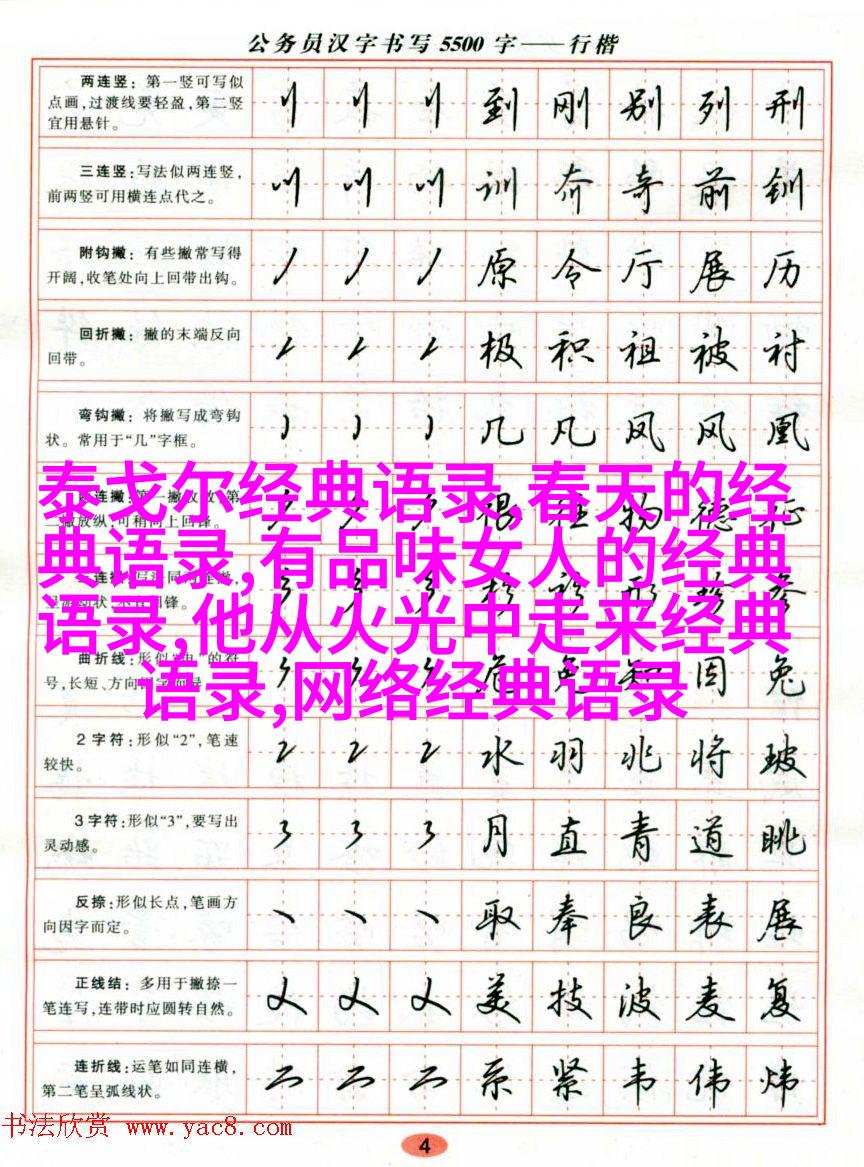 公务员汉字书写5500字——行楷
两连竖：第一竖可写似
点画，过渡线要轻盈，第二竖
宜用悬针。
到 刚 别 列 刑
三连竖：写法似两连竖，
前两竖可用横连点代之。
训 奔 奇 前 钏
附钩撇：有些撇常写得
开阔，收笔处向上回带出钩。
原 令 厅 展 历
回折撇：撇的末端反向
回带。
极 积 祖 被 衬
弯钩撇：将撇写成弯钩
状。常用于“几”字框。
几 凡 凤 风 凰
泰戈尔经典语录,春天的经
典语录,有品味女人的经典
语录,他从火光中走来经典
语录,网络经典语录
二撇放纵,可稍向上回锋。
物 德 征
形 参
曲折线：形似
号,长短、方向
免 知 因 兔
2字符：形似“2”，笔速
较快。
2 2 2 水 羽 兆 将 玻
3字符：形似“3”，要写出
灵动感。
3 3 3 月 直 青 道 眺
反捺：形似长点，笔画方
向因字而定。
取 奉 良 表 展
正线结：多用于撇捺一
笔连写，连带时应圆转自然。
美 技 波 麦 复
连折线：运笔如同连横，
第二笔呈弧线状。
系 紧 韦 伟 炜
书法欣赏 www.yac8.com
4